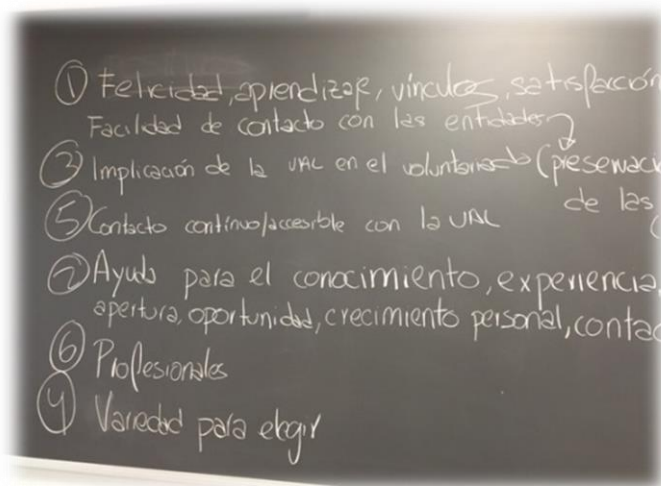 ① Felicidad, aprendizaje, vínculos, satisfacción
Facilidad de contacto con las entidades
③ Implicación de la UAL en el voluntariado (presentaci
de las
⑤ Contacto contínuo/accesible con la UAL
② Ayuda para el conocimiento, experiencia,
apertura, oportunidad, crecimiento personal, contac
⑥ Profesionales
④ Variedad para elegir